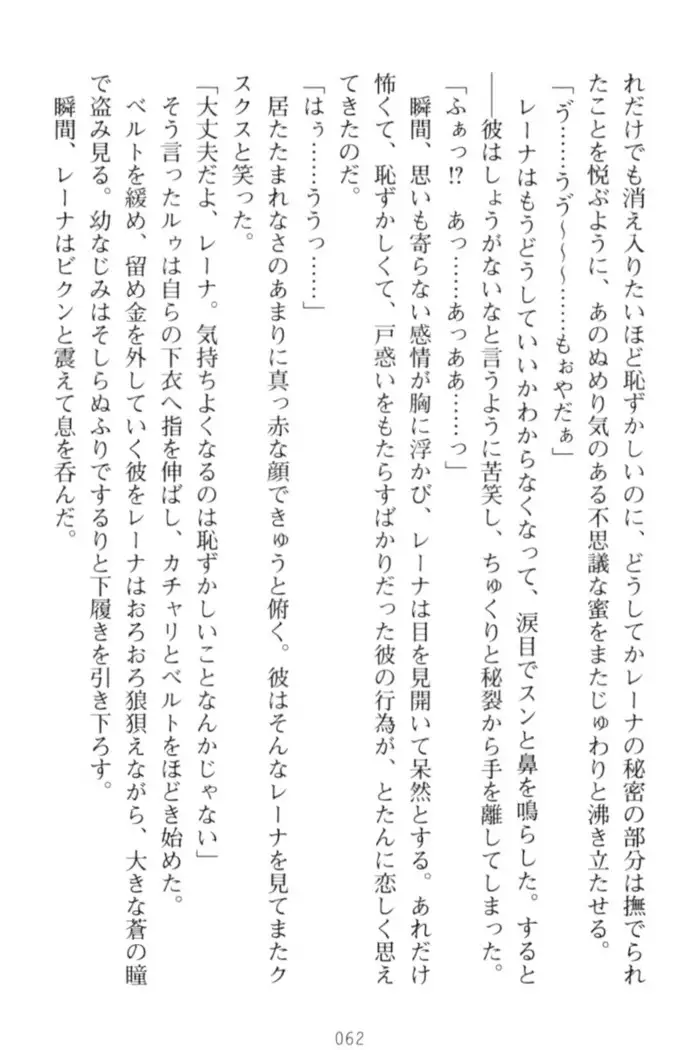 れだけでも消え入りたいほど恥ずかしいのに、どうしてかレーナの秘密の部分は撫でられ
たことを悦ぶように、あのぬめり気のある不思議な蜜をまたじゅわりと沸き立たせる。
「ゔ……うゔ〜〜〜……もぉやだぁ」
レーナはもうどうしていいかわからなくなって、涙目でスンと鼻を鳴らした。すると
――彼はしょうがないなと言うように苦笑し、ちゅくりと秘裂から手を離してしまった。
「ふぁっ!? あっ……あっああ……っ」
瞬間、思いも寄らない感情が胸に浮かび、レーナは目を見開いて呆然とする。あれだけ
怖くて、恥ずかしくて、戸惑いをもたらすばかりだった彼の行為が、とたんに恋しく思え
てきたのだ。
「はぅ……ううっ……」
居たたまれなさのあまりに真っ赤な顔できゅうと俯く。彼はそんなレーナを見てまたク
スクスと笑った。
「大丈夫だよ、レーナ。気持ちよくなるのは恥ずかしいことなんかじゃない」
そう言ったルゥは自らの下衣へ指を伸ばし、カチャリとベルトをほどき始めた。
ベルトを緩め、留め金を外していく彼をレーナはおろおろ狼狽えながら、大きな蒼の瞳
で盗み見る。幼なじみはそしらぬふりでするりと下履きを引き下ろす。
瞬間、レーナはビクンと震えて息を呑んだ。
062